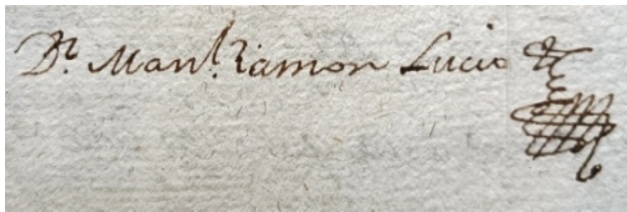 Dr. Manl. Ramon Lucio